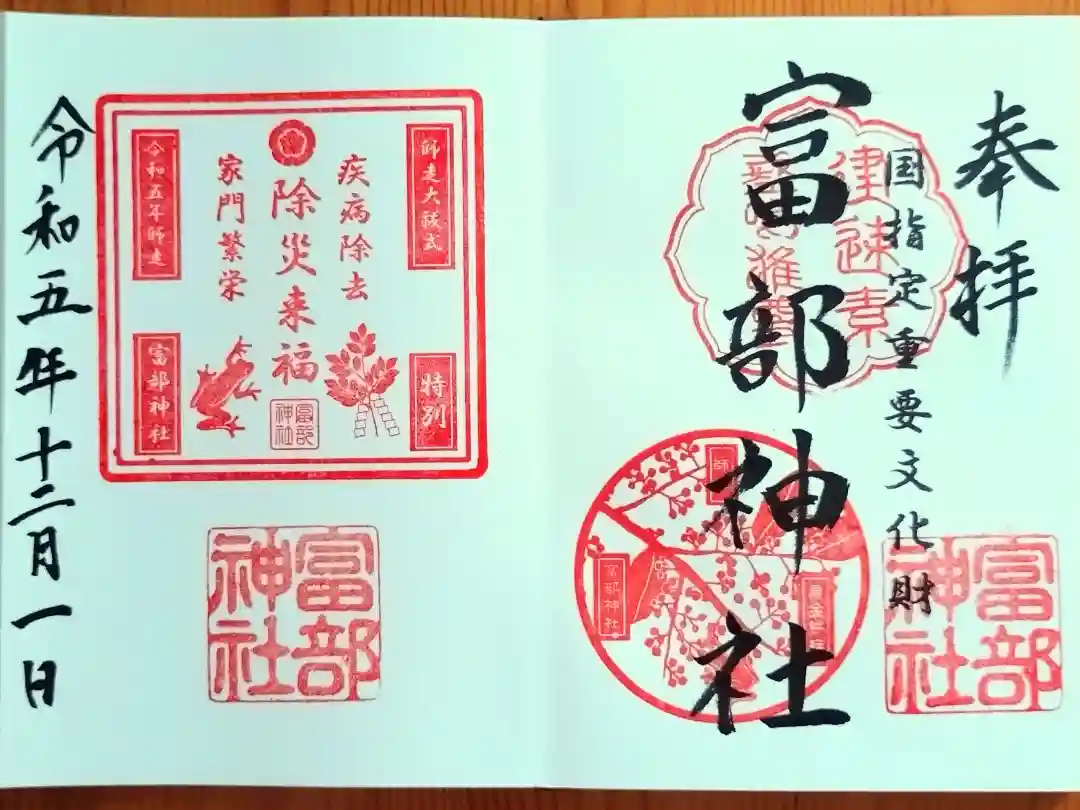 奉拝
国指定重要文化財
富部神社
建速素
富部神社
師
富部神社
師走大祓式
特別
疾病除去
除災来福
富部神社
家門繁栄
令和五年師走
富部神社
富部神社
令和五年十二月一日